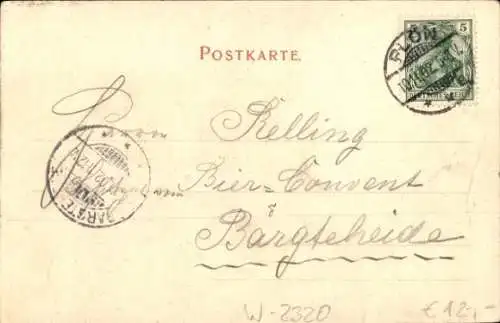 POSTKARTE.
5
PLÖN
Herrn Kelling
Bier-Convent
Bargteheide
W-2320
€ 12,-